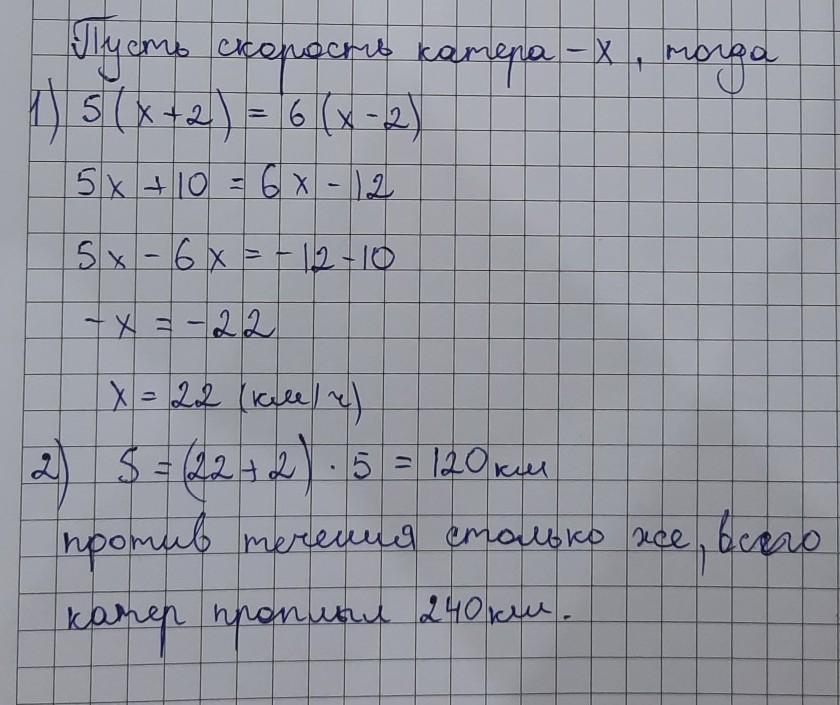 Пусть скорость катера – x, тогда
1) 5(x+2) = 6(x-2)
5x + 10 = 6x - 12
5x - 6x = -12-10
-x = -22
x = 22 (км/ч)
2) S = (22+2) · 5 = 120 км
против течения столько же, всего
катер проплыл 240 км.